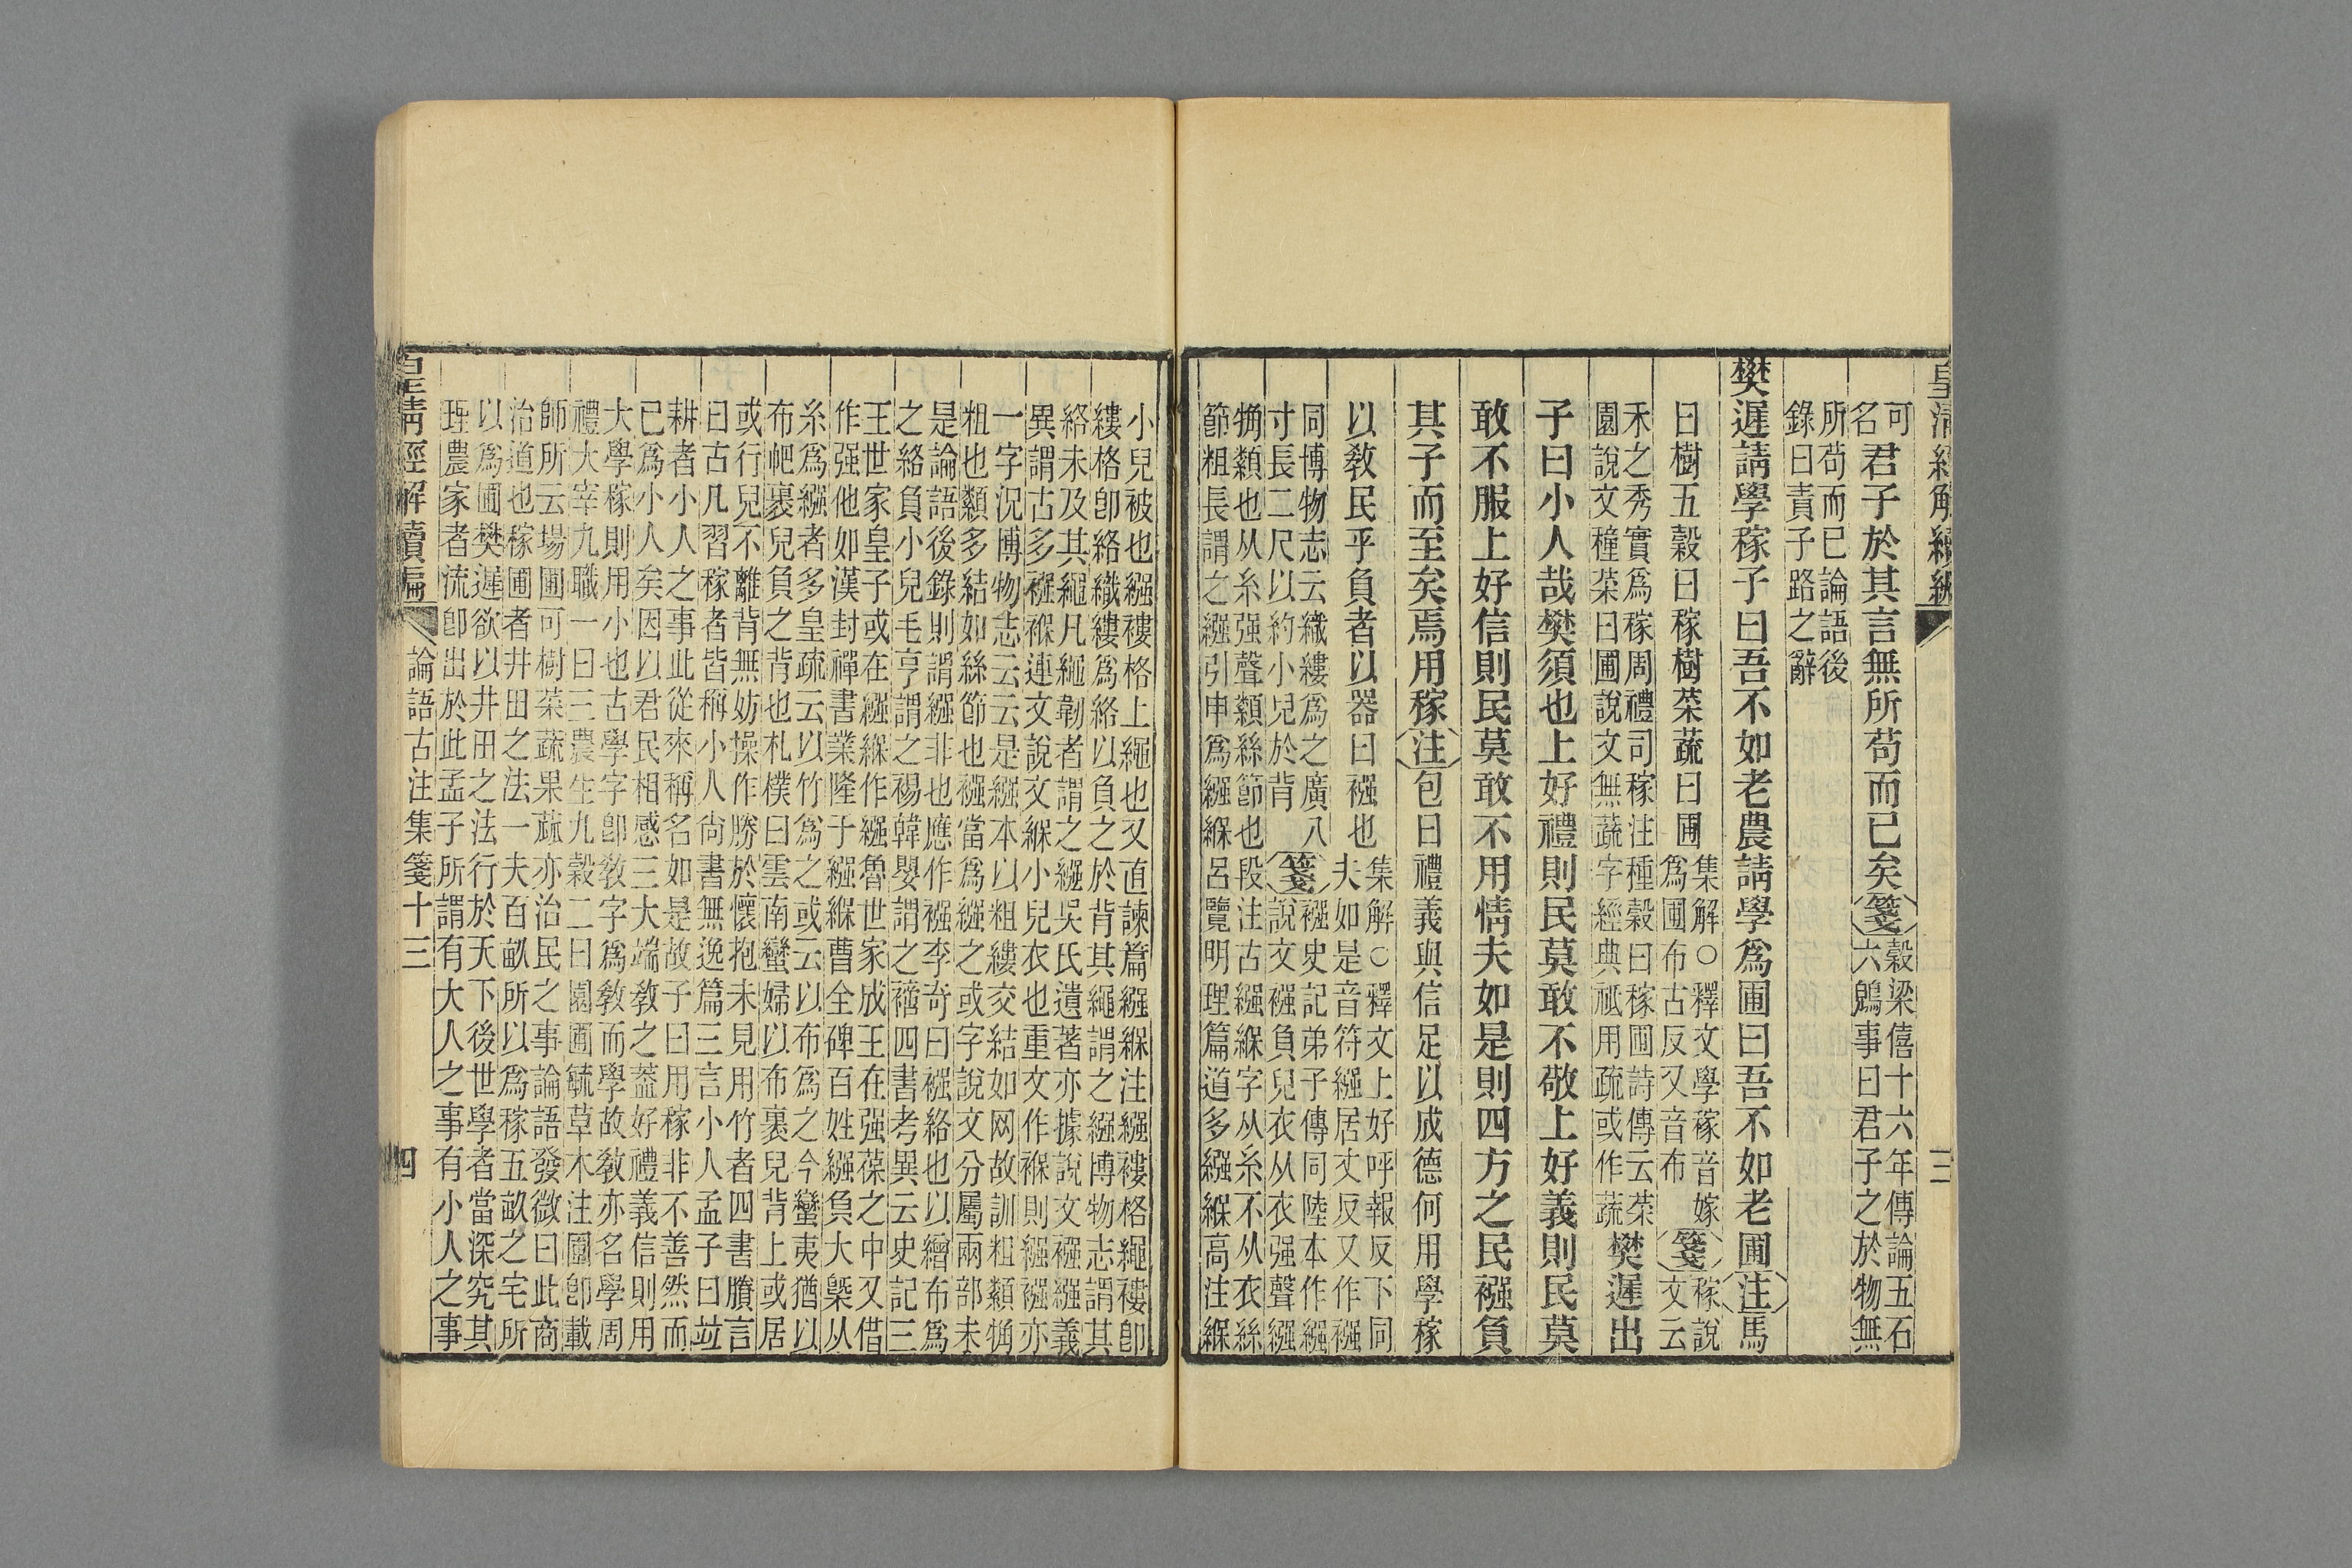 皇清經解續編 三
可名君子於其言無所苟而已矣箋穀梁僖十六年傳論五石
六鷁事曰君子之於物無
所苟而已論語後
錄曰責子路之辭
樊遲請學稼子曰吾不如老農請學爲圃曰吾不如老圃注馬
曰樹五穀曰稼樹菜蔬曰圃集解○釋文學稼音嫁
爲圃布古反又音布箋稼說
文云
禾之秀實爲稼周禮司稼注種穀曰稼圃詩傳云菜
園說文種菜曰圃說文無蔬字經典祗用疏或作蔬樊遲出
子曰小人哉樊須也上好禮則民莫敢不敬上好義則民莫
敢不服上好信則民莫敢不用情夫如是則四方之民襁負
其子而至矣焉用稼注包曰禮義與信足以成德何用學稼
以敎民乎負者以器曰襁也集解○釋文上好呼報反下同
夫如是音符繦居丈反又作襁
同博物志云織縷爲之廣八
寸長二尺以約小兒於背箋襁史記弟子傳同陸本作繦
說文襁負兒衣从衣强聲繦
觕纇也从糸强聲纇絲節也段注古繦緥字从糸不从衣絲
節粗長謂之繦引申爲繦緥呂覽明理篇道多繦緥高注緥
小兒被也繦褸格上繩也又直諫篇繦緥注繦褸格繩褸卽
縷格卽絡織縷爲絡以負之於背其繩謂之繦博物志謂其
絡未及其繩凡繩韌者謂之繦吳氏遺著亦據說文襁繦義
異謂古多襁褓連文說文緥小兒衣也重文作褓則繦襁亦
一字況博物志云云是繦本以粗縷交結如网故訓粗纇觕
粗也纇多結如絲節也襁當爲繦之或字說文分屬兩部未
是論語後錄則謂繦非也應作襁李奇曰襁絡也以繒布爲
之絡負小兒毛亨謂之裼韓嬰謂之褿四書考異云史記三
王世家皇子或在繦緥作繦魯世家成王在强葆之中又借
作强他如漢封禪書業隆于繦緥曹全碑百姓繦負大槩从
糸爲繦者多皇疏云以竹爲之或云以布爲之今蠻夷猶以
布帊裹兒負之背也札樸曰雲南蠻婦以布裹兒背上或居
或行兒不離背無妨操作勝於懷抱未見用竹者四書賸言
曰古凡習稼者皆稱小人尙書無逸篇三言小人孟子曰竝
耕者小人之事此從來稱名如是故子曰用稼非不善然而
已爲小人矣因以君民相感三大端敎之葢好禮義信則用
大學稼則用小也古學字卽敎字爲敎而學故敎亦名學周
禮大宰九職一曰三農生九穀二曰園圃毓草木注園卽載
師所云場圃可樹菜蔬果蓏亦治民之事論語發微曰此商
治道也稼圃者井田之法一夫百畝所以爲稼五畝之宅所
以爲圃樊遲欲以井田之法行於天下後世學者當深究其
理農家者流卽出於此孟子所謂有大人之事有小人之事
皇清經解續編 論語古注集箋十三 四